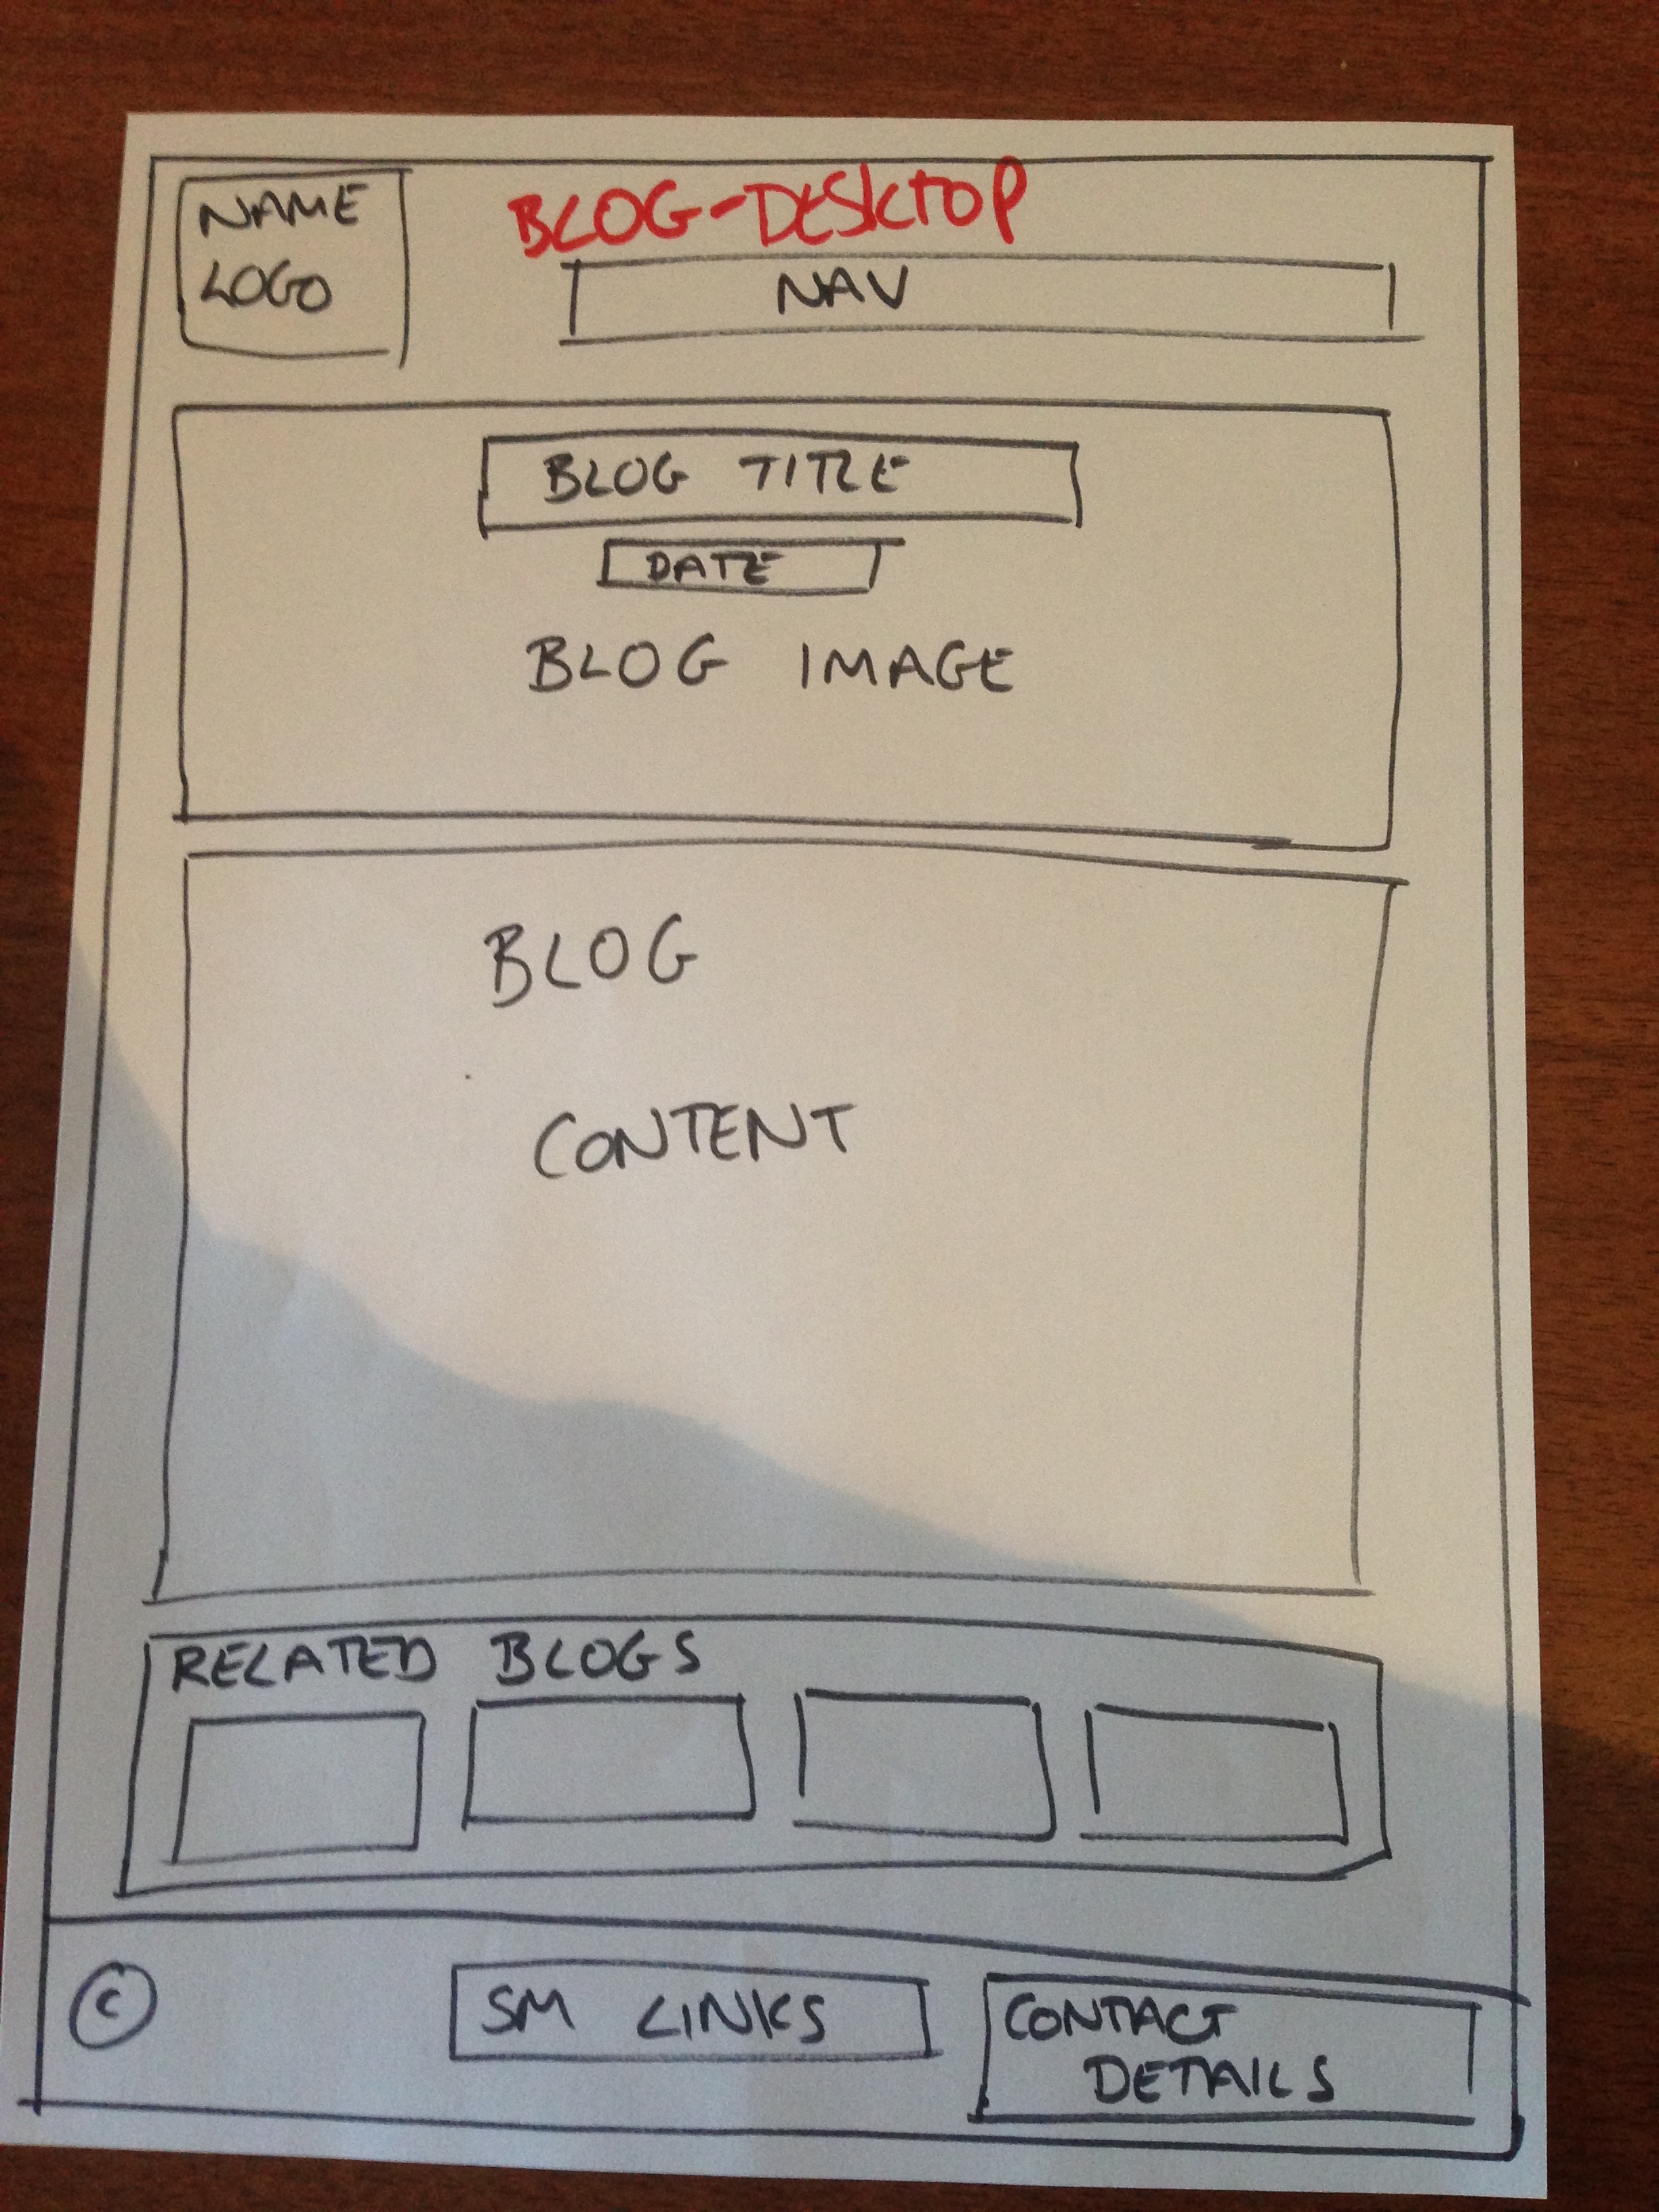 BLOG-DESKTOP
NAME
LOGO
NAV
BLOG TITLE
DATE
BLOG IMAGE
BLOG
CONTENT
RELATED BLOGS
©
SM LINKS
CONTACT
DETAILS